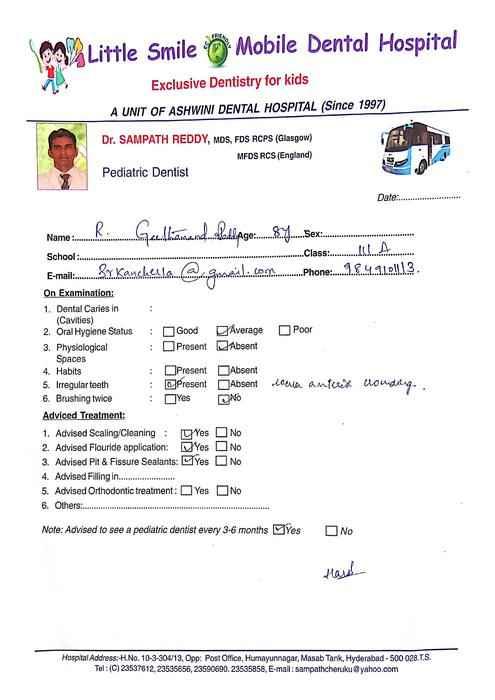 Little Smile ECO FRIENDLY Mobile Dental Hospital
Exclusive Dentistry for kids
A UNIT OF ASHWINI DENTAL HOSPITAL (Since 1997)
Dr. SAMPATH REDDY, MDS, FDS RCPS (Glasgow)
MFDS RCS (England)
Pediatric Dentist
Date:
Name: R. Age: 8y Sex:
School: Class: III A
E-mail: @gmail.com Phone:
On Examination:
1. Dental Caries in :
(Cavities)
2. Oral Hygiene Status : Good Average Poor
3. Physiological : Present Absent
Spaces
4. Habits : Present Absent
5. Irregular teeth : Present Absent crowding.
6. Brushing twice : Yes No
Adviced Treatment:
1. Advised Scaling/Cleaning : Yes No
2. Advised Flouride application: Yes No
3. Advised Pit & Fissure Sealants: Yes No
4. Advised Filling in
5. Advised Orthodontic treatment : Yes No
6. Others:
Note: Advised to see a pediatric dentist every 3-6 months Yes No
Hospital Address:-H.No. 10-3-304/13, Opp: Post Office, Humayunnagar, Masab Tank, Hyderabad - 500 028.T.S.
Tel : (C) 23537612, 23535656, 23590690. 23535858, E-mail : sampathcheruku@yahoo.com